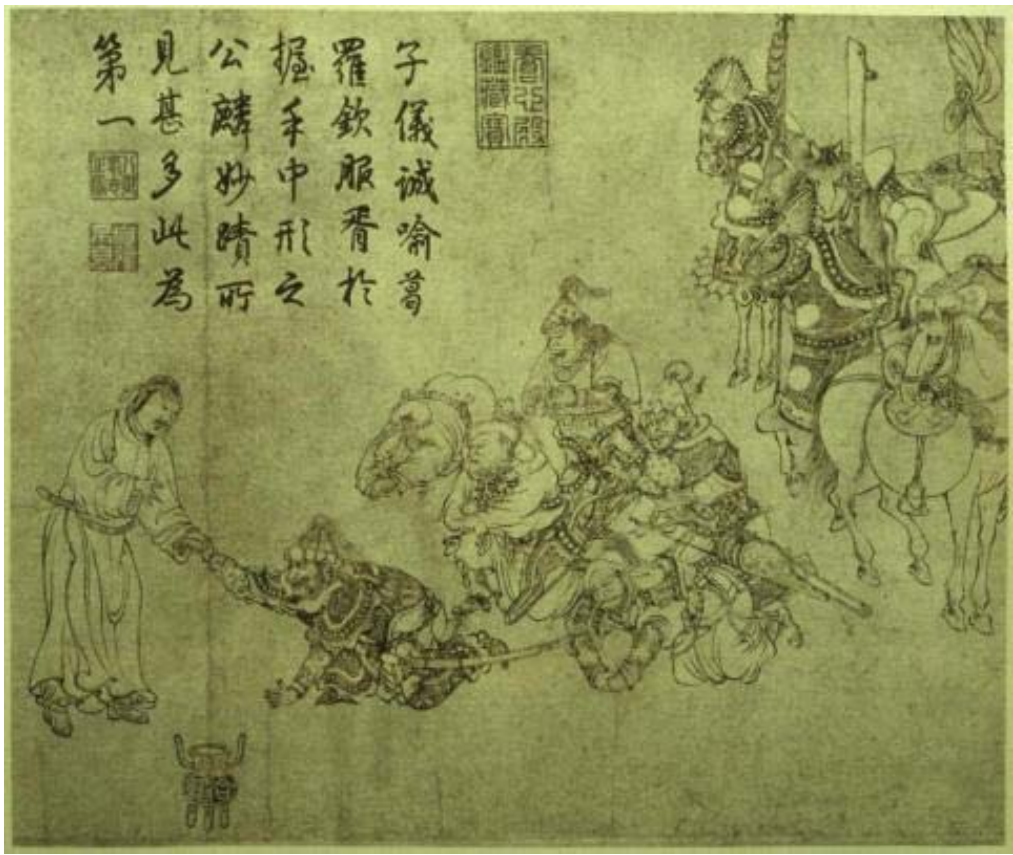 養心殿
鑑藏寶
子儀誠喻葛
羅欽服胥於
握手中形之
公麟妙蹟所
見甚多此為
第一